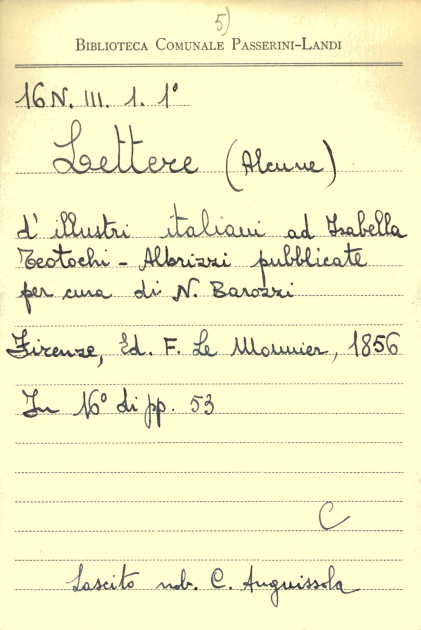 5)
BIBLIOTECA COMUNALE PASSERINI-LANDI
16 N. III. 1. 1°
Lettere (Alcune)
d' illustri italiani ad Isabella
Teotochi - Albrizzi pubblicate
per cura di N. Barozzi
Firenze, Ed. F. Le Monnier, 1856
In 16° di pp. 53
C
Lascito nob. C. Anguissola